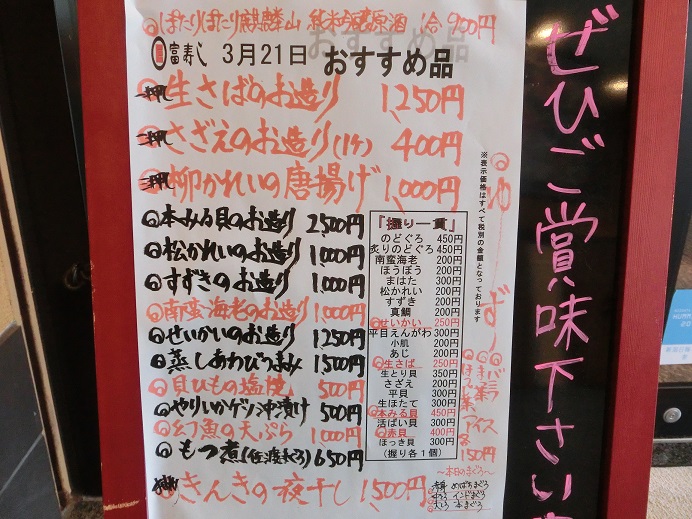 ぽたりぽたり麒麟山 純米吟醸原酒 1合 900円
富寿し 3月21日 おすすめ品
一押し 生さばのお造り 1,250円
一押し さざえのお造り(1ケ) 400円
一押し 柳かれいの唐揚げ 1,000円
◎本みる貝のお造り 2,500円
◎松かれいのお造り 1,000円
◎すずきのお造り 1,000円
◎南蛮海老のお造り 1,000円
◎せいかいのお造り 1,250円
◎蒸しあわびつまみ 1,500円
◎貝ひもの塩焼 500円
◎やりいかゲソ沖漬け 500円
◎幻魚の天ぷら 1,000円
◎もつ煮(佐渡もぐろ) 650円
きんきの夜干し 1,500円
「握り一貫」
のどぐろ 450円
炙りのどぐろ 450円
南蛮海老 200円
ほうぼう 200円
まはた 300円
松かれい 200円
すずき 200円
真鯛 200円
◎せいかい 250円
平目えんがわ 300円
小肌 200円
あじ 200円
◎生さば 250円
生とり貝 350円
さざえ 200円
平貝 300円
生ほたて 300円
◎本みる貝 450円
活ばい貝 300円
◎赤貝 400円
ほっき貝 300円
(握り各1個)
※表示価格はすべて税別の金額となっております
◎ゆずシ
アイス
各150円
〜本日のまぐろ〜
赤身 めばちまぐろ
中とろ インドまぐろ
大とろ 本まぐろ
ぜひご賞味下さい